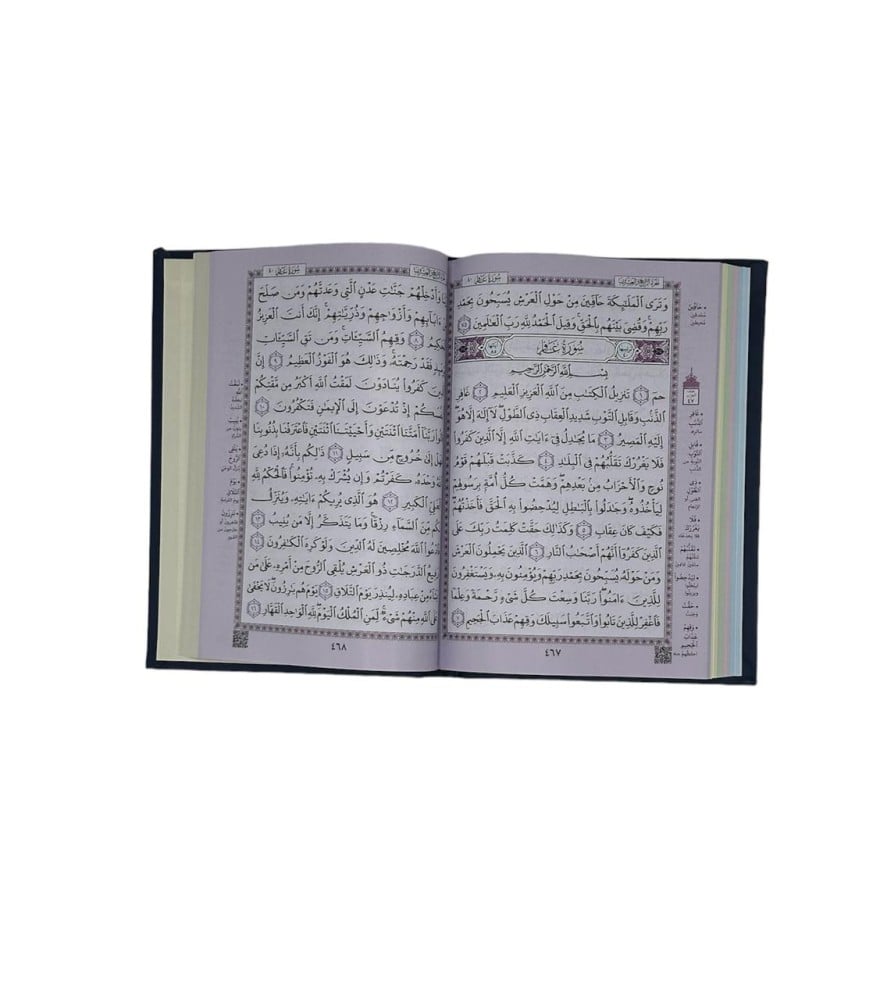 سُورَةُ غَافِر ٤٠
وَتَرَى ٱلْمَلَٰٓئِكَةَ حَآفِّينَ مِنْ حَوْلِ ٱلْعَرْشِ يُسَبِّحُونَ بِحَمْدِ
رَبِّهِمْ وَقُضِىَ بَيْنَهُم بِٱلْحَقِّ وَقِيلَ ٱلْحَمْدُ لِلَّهِ رَبِّ ٱلْعَٰلَمِينَ ٧٥
سُورَةُ غَافِر
بِسْمِ ٱللَّهِ ٱلرَّحْمَٰنِ ٱلرَّحِيمِ
حمٓ ١ تَنزِيلُ ٱلْكِتَٰبِ مِنَ ٱللَّهِ ٱلْعَزِيزِ ٱلْعَلِيمِ ٢ غَافِرِ
ٱلذَّنۢبِ وَقَابِلِ ٱلتَّوْبِ شَدِيدِ ٱلْعِقَابِ ذِى ٱلطَّوْلِ لَآ إِلَٰهَ إِلَّا هُوَ
إِلَيْهِ ٱلْمَصِيرُ ٣ مَا يُجَٰدِلُ فِىٓ ءَايَٰتِ ٱللَّهِ إِلَّا ٱلَّذِينَ كَفَرُوا۟
فَلَا يَغْرُرْكَ تَقَلُّبُهُمْ فِى ٱلْبِلَٰدِ ٤ كَذَّبَتْ قَبْلَهُمْ قَوْمُ
نُوحٍ وَٱلْأَحْزَابُ مِنۢ بَعْدِهِمْ وَهَمَّتْ كُلُّ أُمَّةٍۭ بِرَسُولِهِمْ
لِيَأْخُذُوهُ وَجَٰدَلُوا۟ بِٱلْبَٰطِلِ لِيُدْحِضُوا۟ بِهِ ٱلْحَقَّ فَأَخَذْتُهُمْ
فَكَيْفَ كَانَ عِقَابِ ٥ وَكَذَٰلِكَ حَقَّتْ كَلِمَتُ رَبِّكَ عَلَى
ٱلَّذِينَ كَفَرُوٓا۟ أَنَّهُمْ أَصْحَٰبُ ٱلنَّارِ ٦ ٱلَّذِينَ يَحْمِلُونَ ٱلْعَرْشَ
وَمَنْ حَوْلَهُۥ يُسَبِّحُونَ بِحَمْدِ رَبِّهِمْ وَيُؤْمِنُونَ بِهِۦ وَيَسْتَغْفِرُونَ
لِلَّذِينَ ءَامَنُوا۟ رَبَّنَا وَسِعْتَ كُلَّ شَىْءٍ رَّحْمَةً وَعِلْمًا
فَٱغْفِرْ لِلَّذِينَ تَابُوا۟ وَٱتَّبَعُوا۟ سَبِيلَكَ وَقِهِمْ عَذَابَ ٱلْجَحِيمِ ٧
٤٦٧
سُورَةُ غَافِر ٤٠
وَأَدْخِلْهُمْ جَنَّٰتِ عَدْنٍ ٱلَّتِى وَعَدتَّهُمْ وَمَن صَلَحَ
ءَابَآئِهِمْ وَأَزْوَٰجِهِمْ وَذُرِّيَّٰتِهِمْ إِنَّكَ أَنتَ ٱلْعَزِيزُ
٨ وَقِهِمُ ٱلسَّيِّـَٔاتِ وَمَن تَقِ ٱلسَّيِّـَٔاتِ
فَقَدْ رَحِمْتَهُۥ وَذَٰلِكَ هُوَ ٱلْفَوْزُ ٱلْعَظِيمُ ٩ إِنَّ
كَفَرُوا۟ يُنَادَوْنَ لَمَقْتُ ٱللَّهِ أَكْبَرُ مِن مَّقْتِكُمْ
إِذْ تُدْعَوْنَ إِلَى ٱلْإِيمَٰنِ فَتَكْفُرُونَ ١٠
رَبَّنَآ أَمَتَّنَا ٱثْنَتَيْنِ وَأَحْيَيْتَنَا ٱثْنَتَيْنِ فَٱعْتَرَفْنَا بِذُنُوبِنَا
إِلَىٰ خُرُوجٍ مِّن سَبِيلٍ ١١ ذَٰلِكُم بِأَنَّهُۥٓ إِذَا دُعِىَ
وَحْدَهُۥ كَفَرْتُمْ وَإِن يُشْرَكْ بِهِۦ تُؤْمِنُوا۟ فَٱلْحُكْمُ لِلَّهِ
ٱلْكَبِيرِ ١٢ هُوَ ٱلَّذِى يُرِيكُمْ ءَايَٰتِهِۦ وَيُنَزِّلُ
مِّنَ ٱلسَّمَآءِ رِزْقًا وَمَا يَتَذَكَّرُ إِلَّا مَن يُنِيبُ ١٣
ٱللَّهَ مُخْلِصِينَ لَهُ ٱلدِّينَ وَلَوْ كَرِهَ ٱلْكَٰفِرُونَ ١٤
ٱلدَّرَجَٰتِ ذُو ٱلْعَرْشِ يُلْقِى ٱلرُّوحَ مِنْ أَمْرِهِۦ عَلَىٰ مَن
مِنْ عِبَادِهِۦ لِيُنذِرَ يَوْمَ ٱلتَّلَاقِ ١٥ يَوْمَ هُم بَٰرِزُونَ لَا يَخْفَىٰ
عَلَى ٱللَّهِ مِنْهُمْ شَىْءٌ لِّمَنِ ٱلْمُلْكُ ٱلْيَوْمَ لِلَّهِ ٱلْوَٰحِدِ ٱلْقَهَّارِ ١٦
٤٦٨